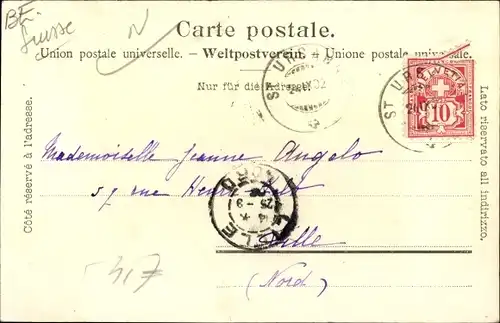 BE.
Suisse
Carte postale.
Union postale universelle. - Weltpostverein. - Unione postale universale.
Nur für die Adresse.
ST URS
HELVETIA
10
ST URS
Côté réservé à l'adresse.
Lato riservato all indirizzo.
Mademoiselle Jeanne Angelo
57 rue Henri
LILLE
NORD
Lille
(Nord)